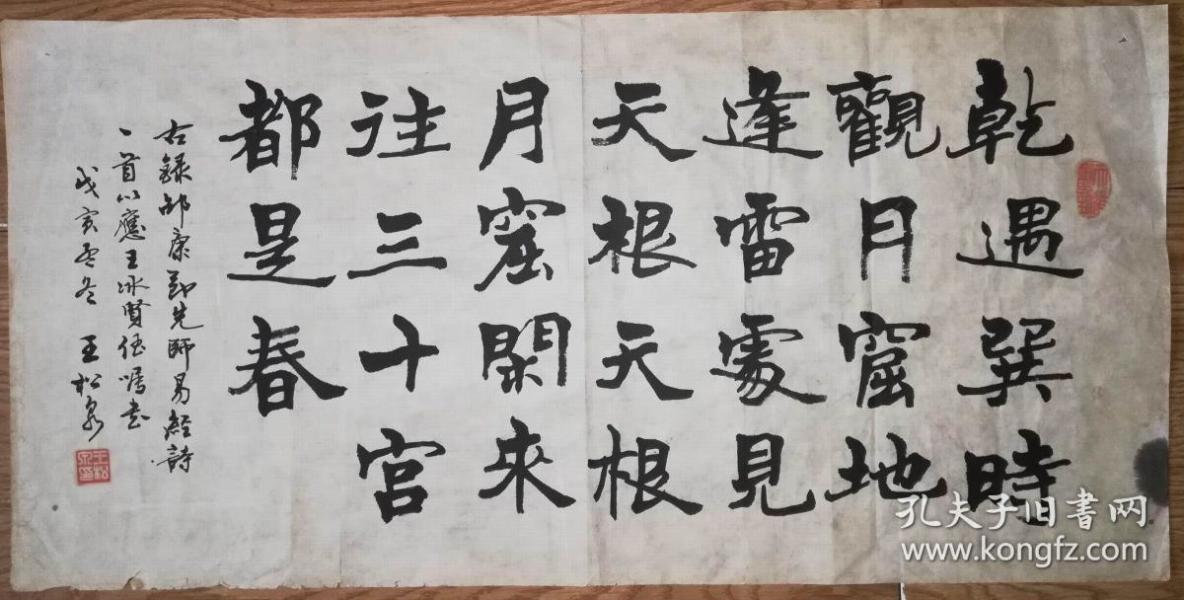 乾遇巽時
觀月窟地
逢雷處見
天根天根
月窟閑來
往三十宮
都是春
右録邵康節先師易經詩
一首以應王冰賢侄嘱書
戊亥冬 王松泉
王松泉印
孔夫子旧書网
www.kongfz.com